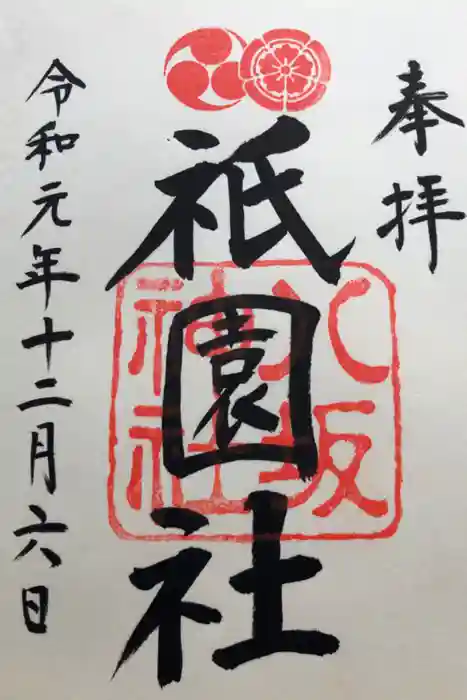 奉拝
祇園社
八坂
神社
令和元年十二月六日